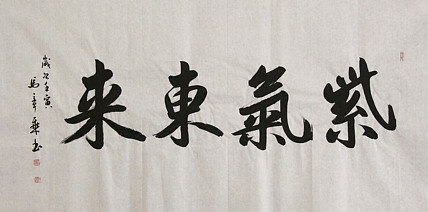 紫氣東来
歲次壬寅
馬
書